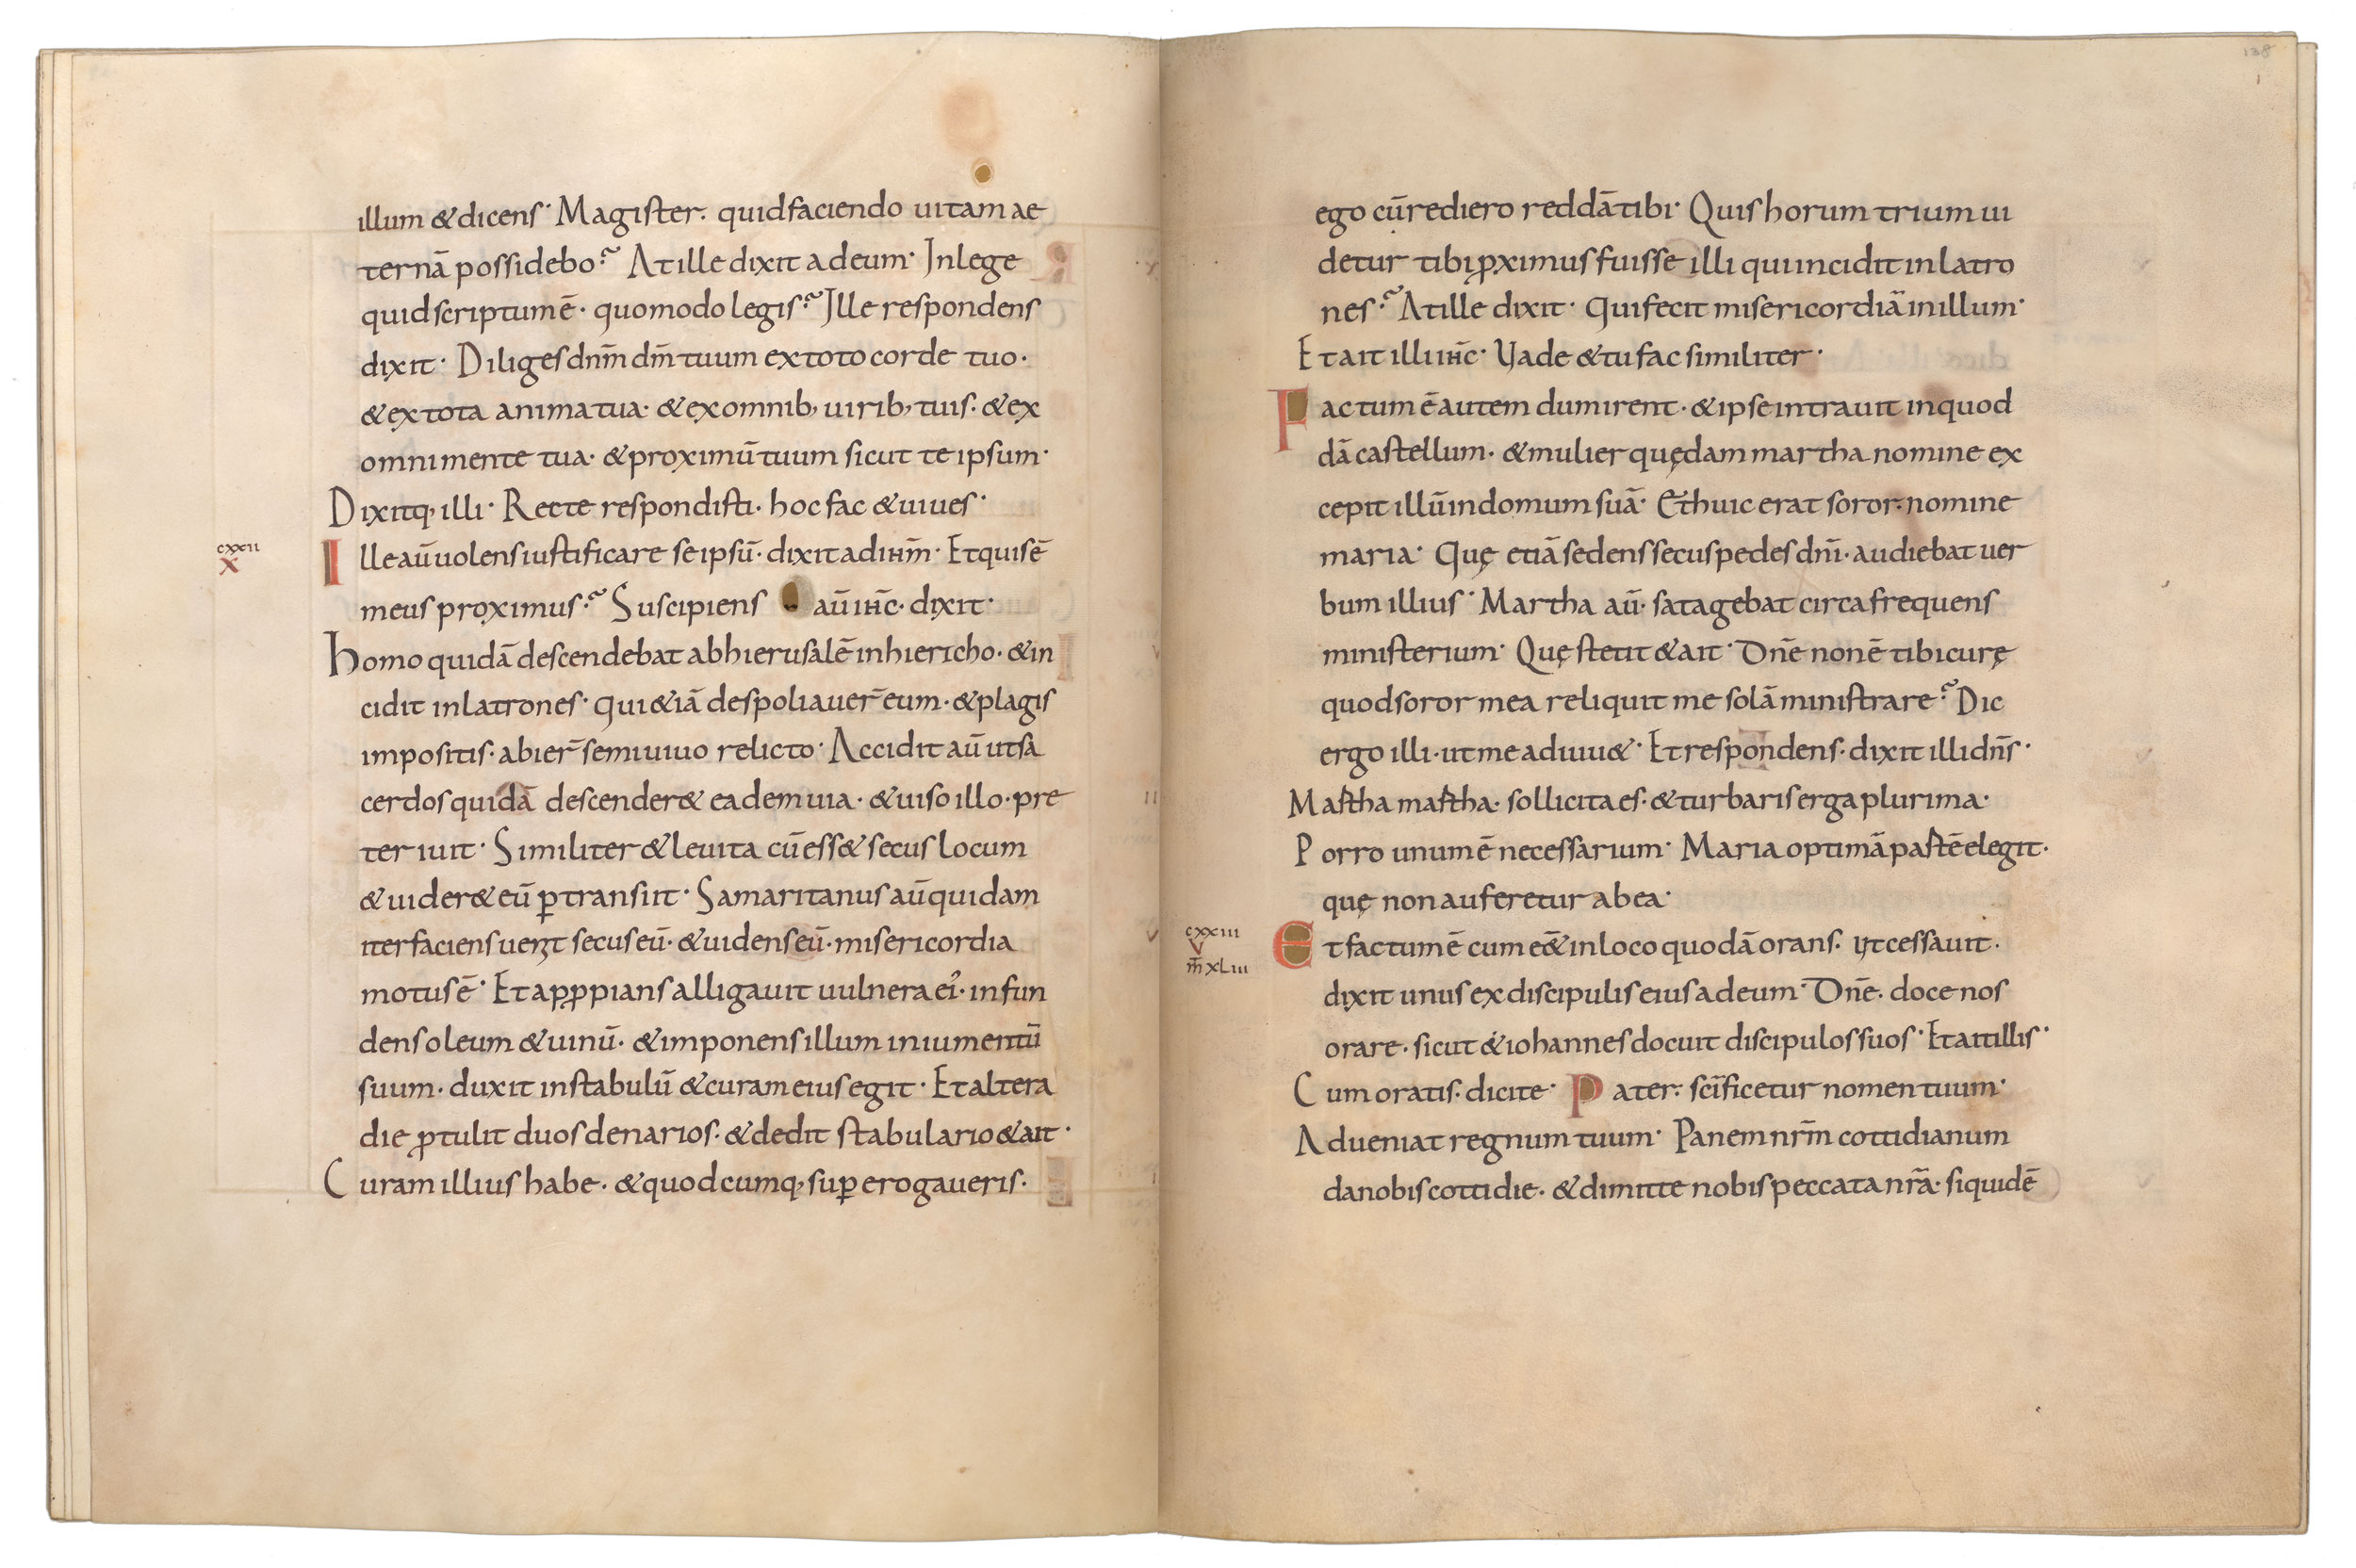 illum & dicens· Magister· quid faciendo uitam ae
ternā possidebo? At ille dixit ad eum· In lege
quid scriptum ē· quomodo legis? Ille respondens
dixit· Diliges dnm̄ dm̄ tuum ex toto corde tuo·
& ex tota anima tua· & ex omnib; uirib; tuis· & ex
omni mente tua· & proximū tuum sicut te ipsum·
Dixitq; illi· Recte respondisti· hoc fac & uiues·
cxxii
X
Ille aū uolens iustificare se ipsū· dixit ad ihm̄· Et quis ē
meus proximus? Suscipiens aū ihc̄· dixit·
homo quidā descendebat ab hierusalē in hiericho· & in
cidit in latrones· qui & iā despoliauer̄ eum· & plagis
impositis· abier̄ semiuiuo relicto· Accidit aū ut sa
cerdos quidā descender& eadem uia· & uiso illo· pre
teriuit· Similiter & leuita cū ess& secus locum
& uider& eū ꝑtransiit· Samaritanus aū quidam
iter faciens uenit secus eū· & uidens eū· misericordia
motus ē· Et apꝓpians alligauit uulnera ei᾿· infun
dens oleum & uinū· & imponens illum in iumentū
suum· duxit in stabulū & curam eius egit· Et altera
die ꝓtulit duos denarios· & dedit stabulario & ait·
Curam illius habe· & quodcumq; suꝑerogaueris·
138
1
ego cū rediero reddā tibi· Quis horum trium ui
detur tibi ꝓximus fuisse illi qui incidit in latro
nes? At ille dixit· Qui fecit misericordiā in illum·
Et ait illi ihc̄· Vade & tu fac similiter·
Factum ē autem dum irent· & ipse intrauit in quod
dā castellum· & mulier quędam martha nomine ex
cepit illū in domum suā· Et huic erat soror· nomine
maria· Quę etiā sedens secus pedes dnī· audiebat uer
bum illius· Martha aū· satagebat circa frequens
ministerium· Quę stetit & ait· Dn̄e non ē tibi curę
quod soror mea reliquit me solā ministrare? Dic
ergo illi· ut me adiuu&· Et respondens· dixit illi dn̄s·
Martha martha· sollicita es· & turbaris erga plurima·
Porro unum ē necessarium· Maria optimā partē elegit·
quę non auferetur ab ea·
cxxiii
V
m̄ xliii
Et factum ē cum e&̄ in loco quodā orans· Vt cessauit·
dixit unus ex discipulis eius ad eum· Dn̄e· doce nos
orare· sicut & iohannes docuit discipulos suos· Et ait illis·
Cum oratis· dicite· Pater· scīficetur nomen tuum·
Adueniat regnum tuum· Panem nrm̄ cottidianum
da nobis cottidie· & dimitte nobis peccata nrā· siquidē